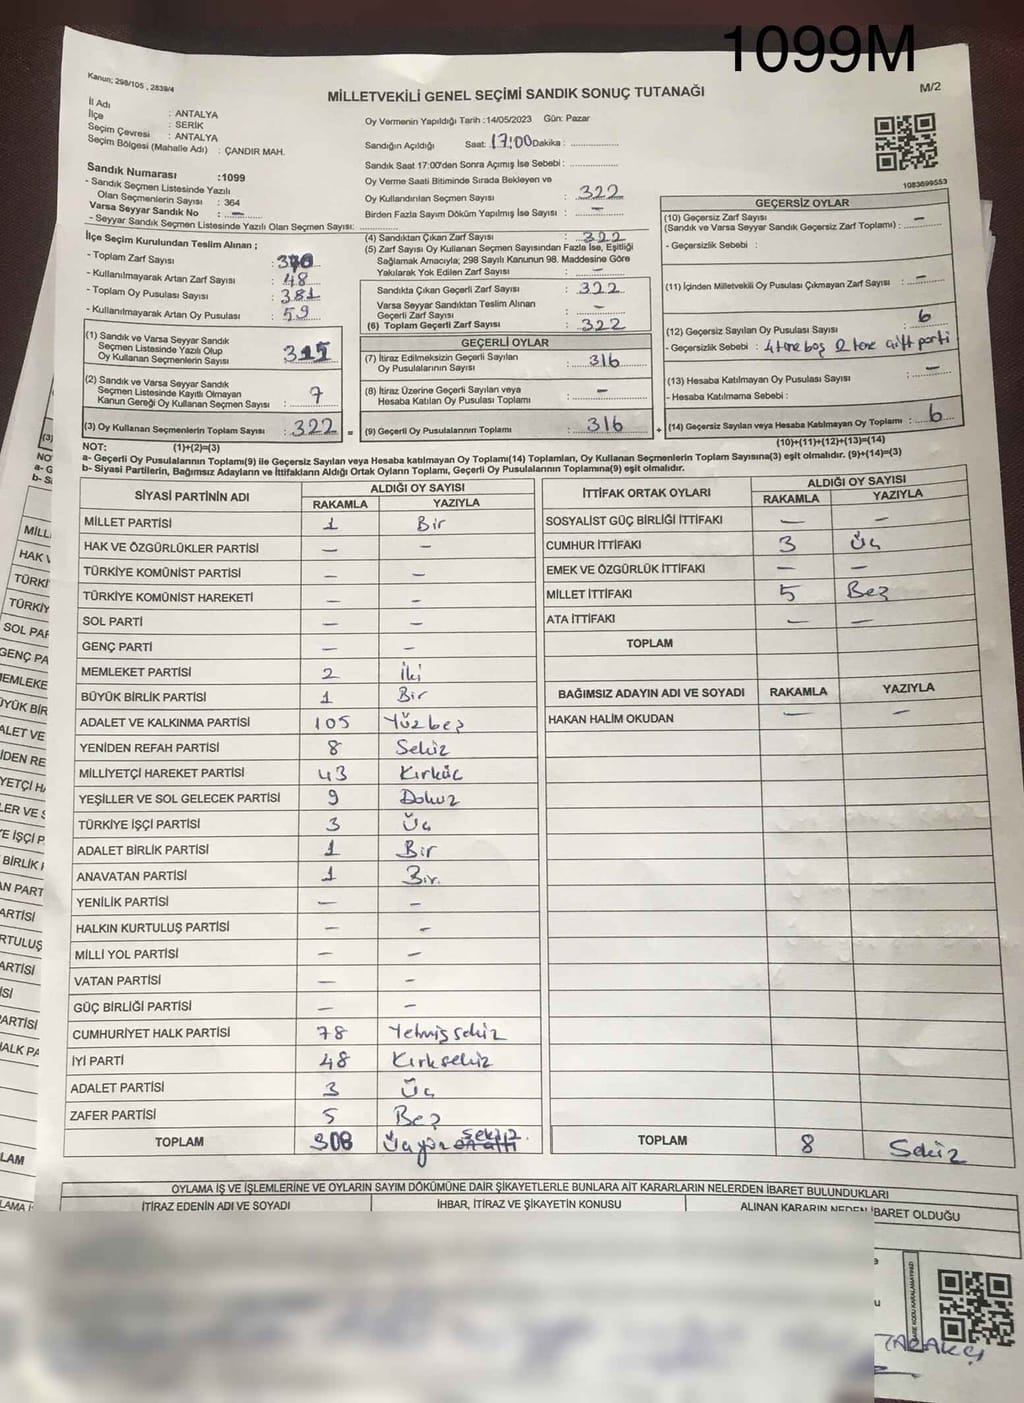 1099M
Kanun; 298/105 , 2839/4
M/2
MİLLETVEKİLİ GENEL SEÇİMİ SANDIK SONUÇ TUTANAĞI
İl Adı : ANTALYA
İlçe : SERİK
Seçim Çevresi : ANTALYA
Seçim Bölgesi (Mahalle Adı) : ÇANDIR MAH.
Sandık Numarası :1099
- Sandık Seçmen Listesinde Yazılı
Olan Seçmenlerin Sayısı : 364
Varsa Seyyar Sandık No : —
- Seyyar Sandık Seçmen Listesinde Yazılı Olan Seçmen Sayısı:
Oy Vermenin Yapıldığı Tarih :14/05/2023 Gün: Pazar
Sandığın Açıldığı Saat: 17:00 Dakika :
Sandık Saat 17:00'den Sonra Açımış İse Sebebi :
Oy Verme Saati Bitiminde Sırada Bekleyen ve
Oy Kullandırılan Seçmen Sayısı : 322
Birden Fazla Sayım Döküm Yapılmış İse Sayısı : —
1083699553
İlçe Seçim Kurulundan Teslim Alınan ;
- Toplam Zarf Sayısı : 370
- Kullanılmayarak Artan Zarf Sayısı : 48
- Toplam Oy Pusulası Sayısı : 381
- Kullanılmayarak Artan Oy Pusulası : 59
(1) Sandık ve Varsa Seyyar Sandık
Seçmen Listesinde Yazılı Olup
Oy Kullanan Seçmenlerin Sayısı : 315
(2) Sandık ve Varsa Seyyar Sandık
Seçmen Listesinde Kayıtlı Olmayan
Kanun Gereği Oy Kullanan Seçmen Sayısı : 7
(3) Oy Kullanan Seçmenlerin Toplam Sayısı : 322 =
(4) Sandıktan Çıkan Zarf Sayısı : 322
(5) Zarf Sayısı Oy Kullanan Seçmen Sayısından Fazla İse, Eşitliği
Sağlamak Amacıyla; 298 Sayılı Kanunun 98. Maddesine Göre
Yakılarak Yok Edilen Zarf Sayısı : —
Sandıkta Çıkan Geçerli Zarf Sayısı : 322
Varsa Seyyar Sandıktan Teslim Alınan
Geçerli Zarf Sayısı : —
(6) Toplam Geçerli Zarf Sayısı : 322
GEÇERLİ OYLAR
(7) İtiraz Edilmeksizin Geçerli Sayılan
Oy Pusulalarının Sayısı : 316
(8) İtiraz Üzerine Geçerli Sayılan veya
Hesaba Katılan Oy Pusulası Toplamı : —
(9) Geçerli Oy Pusulalarının Toplamı : 316 +
GEÇERSİZ OYLAR
(10) Geçersiz Zarf Sayısı
(Sandık ve Varsa Seyyar Sandık Geçersiz Zarf Toplamı) : —
- Geçersizlik Sebebi :
(11) İçinden Milletvekili Oy Pusulası Çıkmayan Zarf Sayısı : —
(12) Geçersiz Sayılan Oy Pusulası Sayısı : 6
- Geçersizlik Sebebi : 4 tane boş 2 tane çift parti
(13) Hesaba Katılmayan Oy Pusulası Sayısı : —
- Hesaba Katılmama Sebebi :
(14) Geçersiz Sayılan veya Hesaba Katılmayan Oy Toplamı : 6
NOT: (1)+(2)=(3) (10)+(11)+(12)+(13)=(14)
a- Geçerli Oy Pusulalarının Toplamı(9) ile Geçersiz Sayılan veya Hesaba katılmayan Oy Toplamı(14) Toplamları, Oy Kullanan Seçmenlerin Toplam Sayısına(3) eşit olmalıdır. (9)+(14)=(3)
b- Siyasi Partilerin, Bağımsız Adayların ve İttifakların Aldığı Ortak Oyların Toplamı, Geçerli Oy Pusulalarının Toplamına(9) eşit olmalıdır.
SİYASİ PARTİNİN ADI ALDIĞI OY SAYISI
RAKAMLA YAZIYLA
MİLLET PARTİSİ 1 Bir
HAK VE ÖZGÜRLÜKLER PARTİSİ — —
TÜRKİYE KOMÜNİST PARTİSİ — —
TÜRKİYE KOMÜNİST HAREKETİ — —
SOL PARTİ — —
GENÇ PARTİ — —
MEMLEKET PARTİSİ 2 İki
BÜYÜK BİRLİK PARTİSİ 1 Bir
ADALET VE KALKINMA PARTİSİ 105 Yüzbeş
YENİDEN REFAH PARTİSİ 8 Sekiz
MİLLİYETÇİ HAREKET PARTİSİ 43 Kırküç
YEŞİLLER VE SOL GELECEK PARTİSİ 9 Dokuz
TÜRKİYE İŞÇİ PARTİSİ 3 Üç
ADALET BİRLİK PARTİSİ 1 Bir
ANAVATAN PARTİSİ 1 Bir.
YENİLİK PARTİSİ — —
HALKIN KURTULUŞ PARTİSİ — —
MİLLİ YOL PARTİSİ — —
VATAN PARTİSİ — —
GÜÇ BİRLİĞİ PARTİSİ — —
CUMHURİYET HALK PARTİSİ 78 Yetmişsekiz
İYİ PARTİ 48 Kırksekiz
ADALET PARTİSİ 3 Üç
ZAFER PARTİSİ 5 Beş
TOPLAM 308 Üçyüz sekiz
İTTİFAK ORTAK OYLARI ALDIĞI OY SAYISI
RAKAMLA YAZIYLA
SOSYALİST GÜÇ BİRLİĞİ İTTİFAKI — —
CUMHUR İTTİFAKI 3 Üç
EMEK VE ÖZGÜRLÜK İTTİFAKI — —
MİLLET İTTİFAKI 5 Beş
ATA İTTİFAKI — —
TOPLAM
BAĞIMSIZ ADAYIN ADI VE SOYADI RAKAMLA YAZIYLA
HAKAN HALİM OKUDAN — —
TOPLAM 8 Sekiz
OYLAMA İŞ VE İŞLEMLERİNE VE OYLARIN SAYIM DÖKÜMÜNE DAİR ŞİKAYETLERLE BUNLARA AİT KARARLARIN NELERDEN İBARET BULUNDUKLARI
İTİRAZ EDENİN ADI VE SOYADI İHBAR, İTİRAZ VE ŞİKAYETİN KONUSU ALINAN KARARIN NEDEN İBARET OLDUĞU